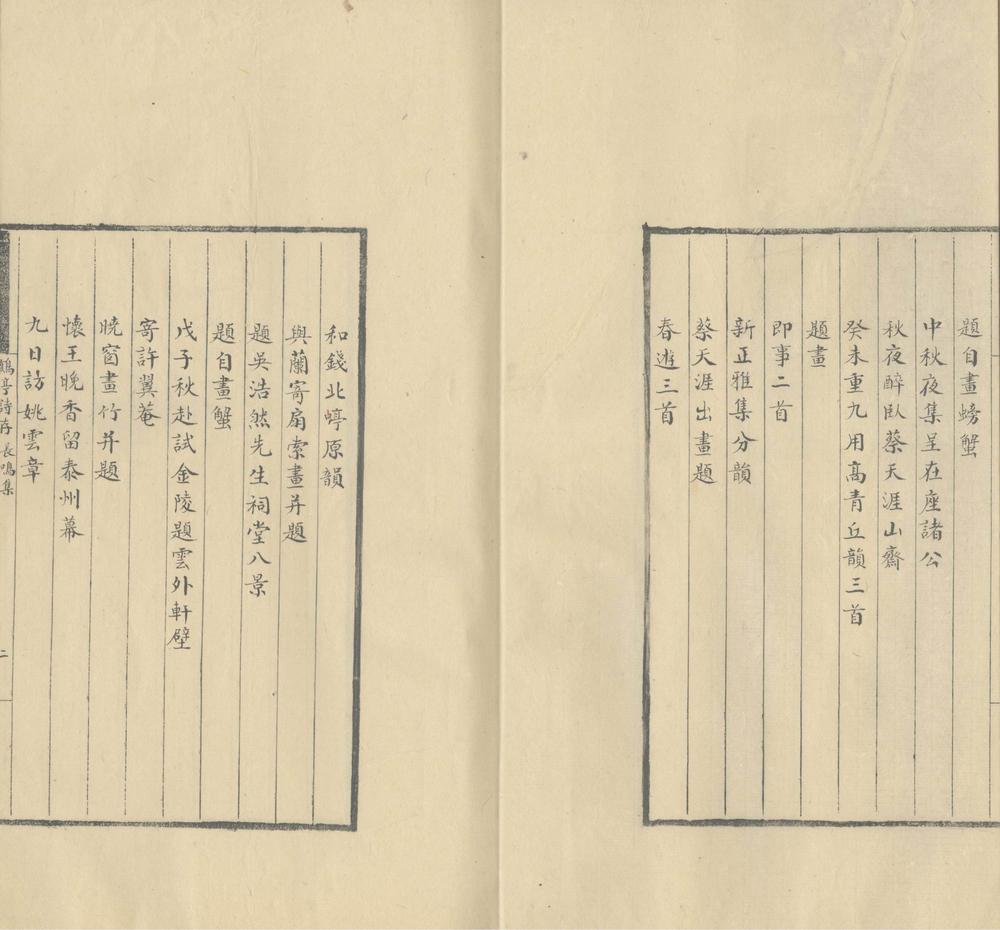 題自畫螃蟹
中秋夜集呈在座諸公
秋夜醉臥蔡天涯山齋
癸未重九用高青丘韻三首
題畫
即事二首
新正雅集分韻
蔡天涯出畫題
春遊三首
和錢北㟳原韻
與蘭寄扇索畫并題
題吳浩然先生祠堂八景
題自畫蟹
戊子秋赴試金陵題雲外軒壁
寄許翼菴
曉窗畫竹并題
懷王晚香留泰州幕
九日訪姚雲章
亭詩存 長鳴集
二